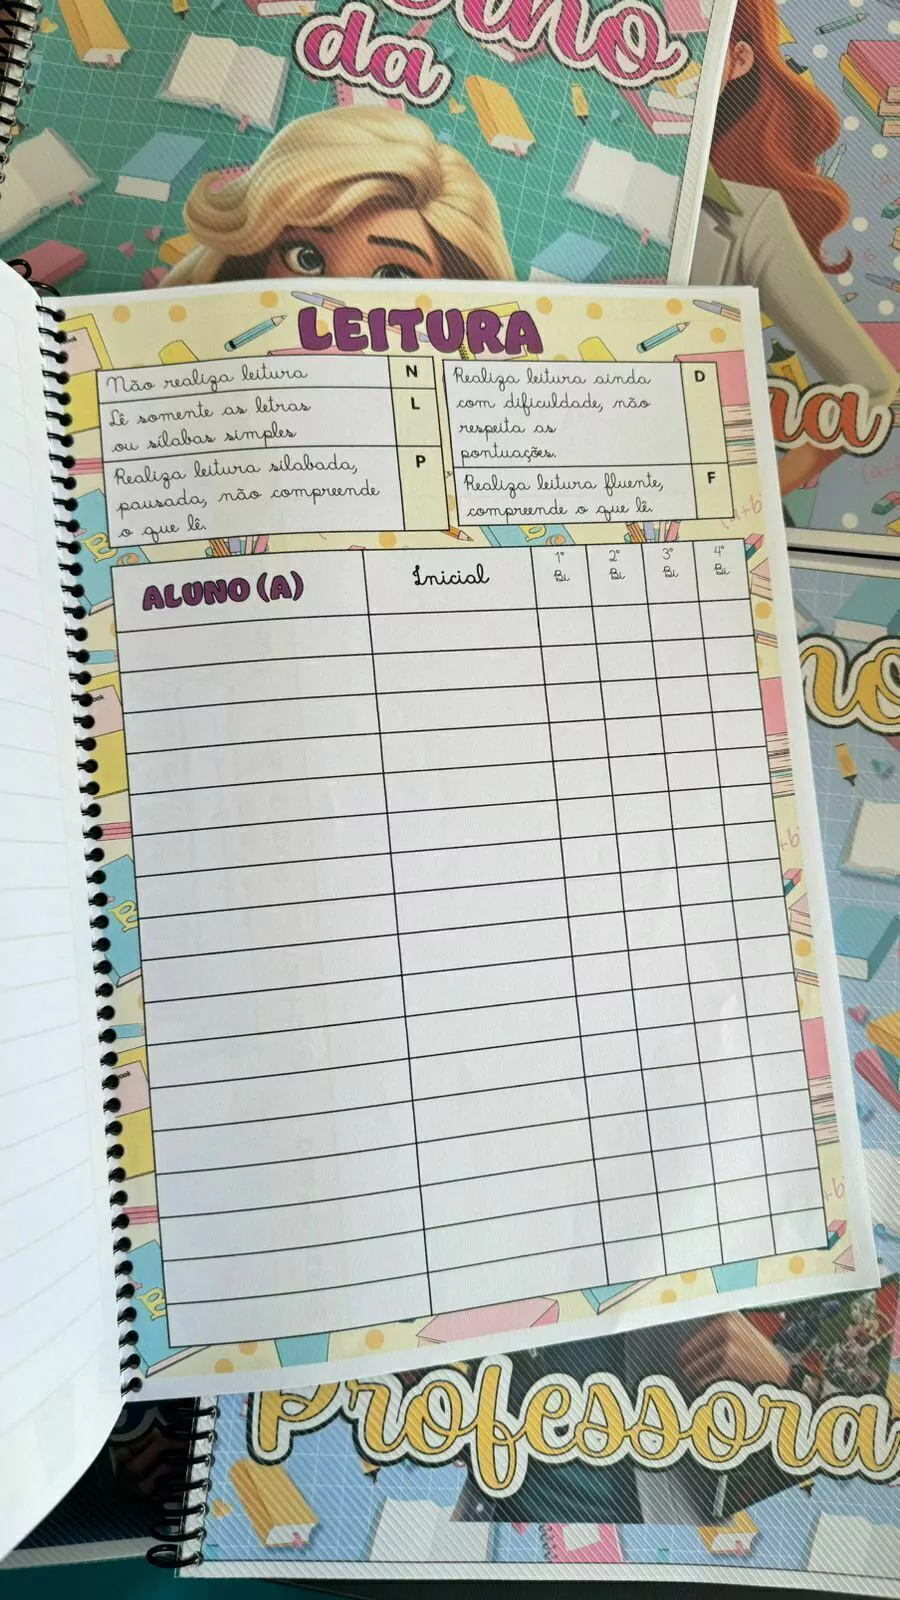 da
LEITURA
Não realiza leitura
N
Lê somente as letras
ou sílabas simples
L
Realiza leitura silabada,
pausada, não compreende
o que lê.
P
Realiza leitura ainda
com dificuldade, não
respeita as
pontuações.
D
Realiza leitura fluente,
compreende o que lê.
F
ALUNO(A)
Inicial
1º
Bi
2º
Bi
3º
Bi
4º
Bi
Professora